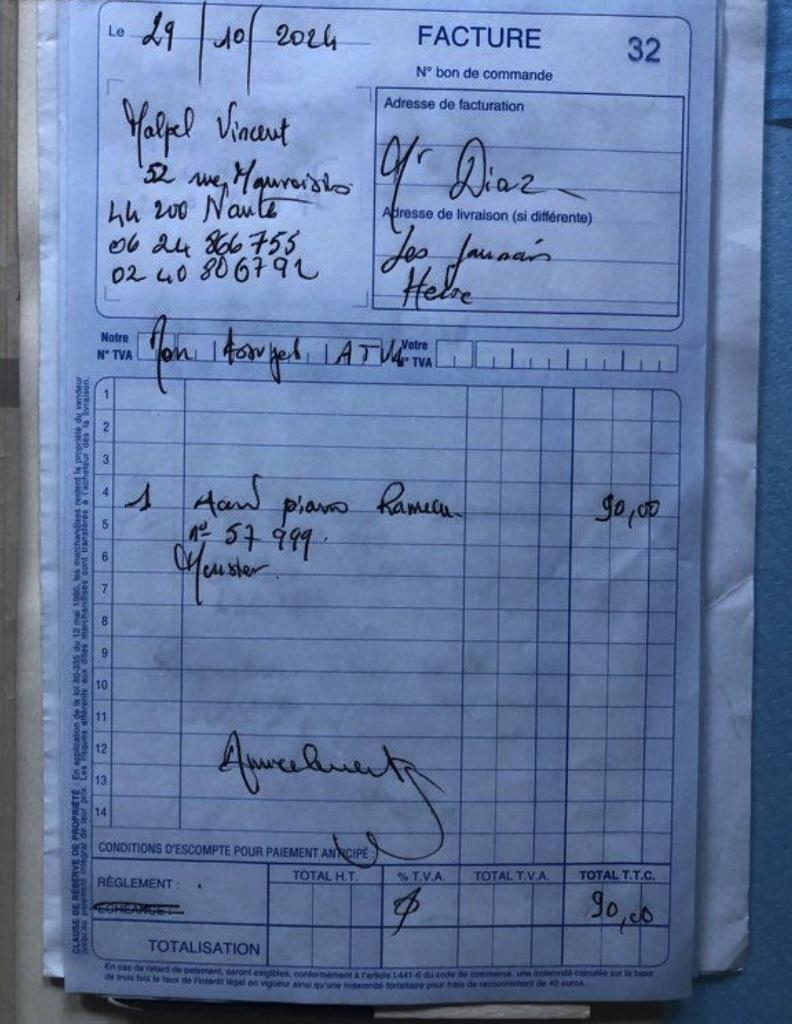 Le 29 / 10 / 2024
FACTURE 32
N° bon de commande
Malpel Vincent
52 rue
44 200 Nantes
06 24 866 755
02 40 806792
Adresse de facturation
Mr Diaz
Adresse de livraison (si différente)
Les
Notre N° TVA Non ATVA
Votre N° TVA
1
2
3
4 1 Accord piano Rameau 90,00
5 n° 57 999
6
7
8
9
10
11
12
13
14
CONDITIONS D'ESCOMPTE POUR PAIEMENT ANTICIPÉ :
RÉGLEMENT :
ÉCHÉANCE :
TOTAL H.T. % T.V.A. TOTAL T.V.A. TOTAL T.T.C.
90,00
TOTALISATION
En cas de retard de paiement, seront exigibles, conformément à l'article L441-6 du code de commerce, une indemnité calculée sur la base
de trois fois le taux de l'intérêt légal en vigueur ainsi qu'une indemnité forfaitaire pour frais de recouvrement de 40 euros.
CLAUSE DE RÉSERVE DE PROPRIÉTÉ : En application de la loi 80-335 du 12 mai 1980, les marchandises restent la propriété du vendeur
jusqu'au paiement intégral de leur prix. Les risques afférents aux dites marchandises sont transférés à l'acheteur dès la livraison.